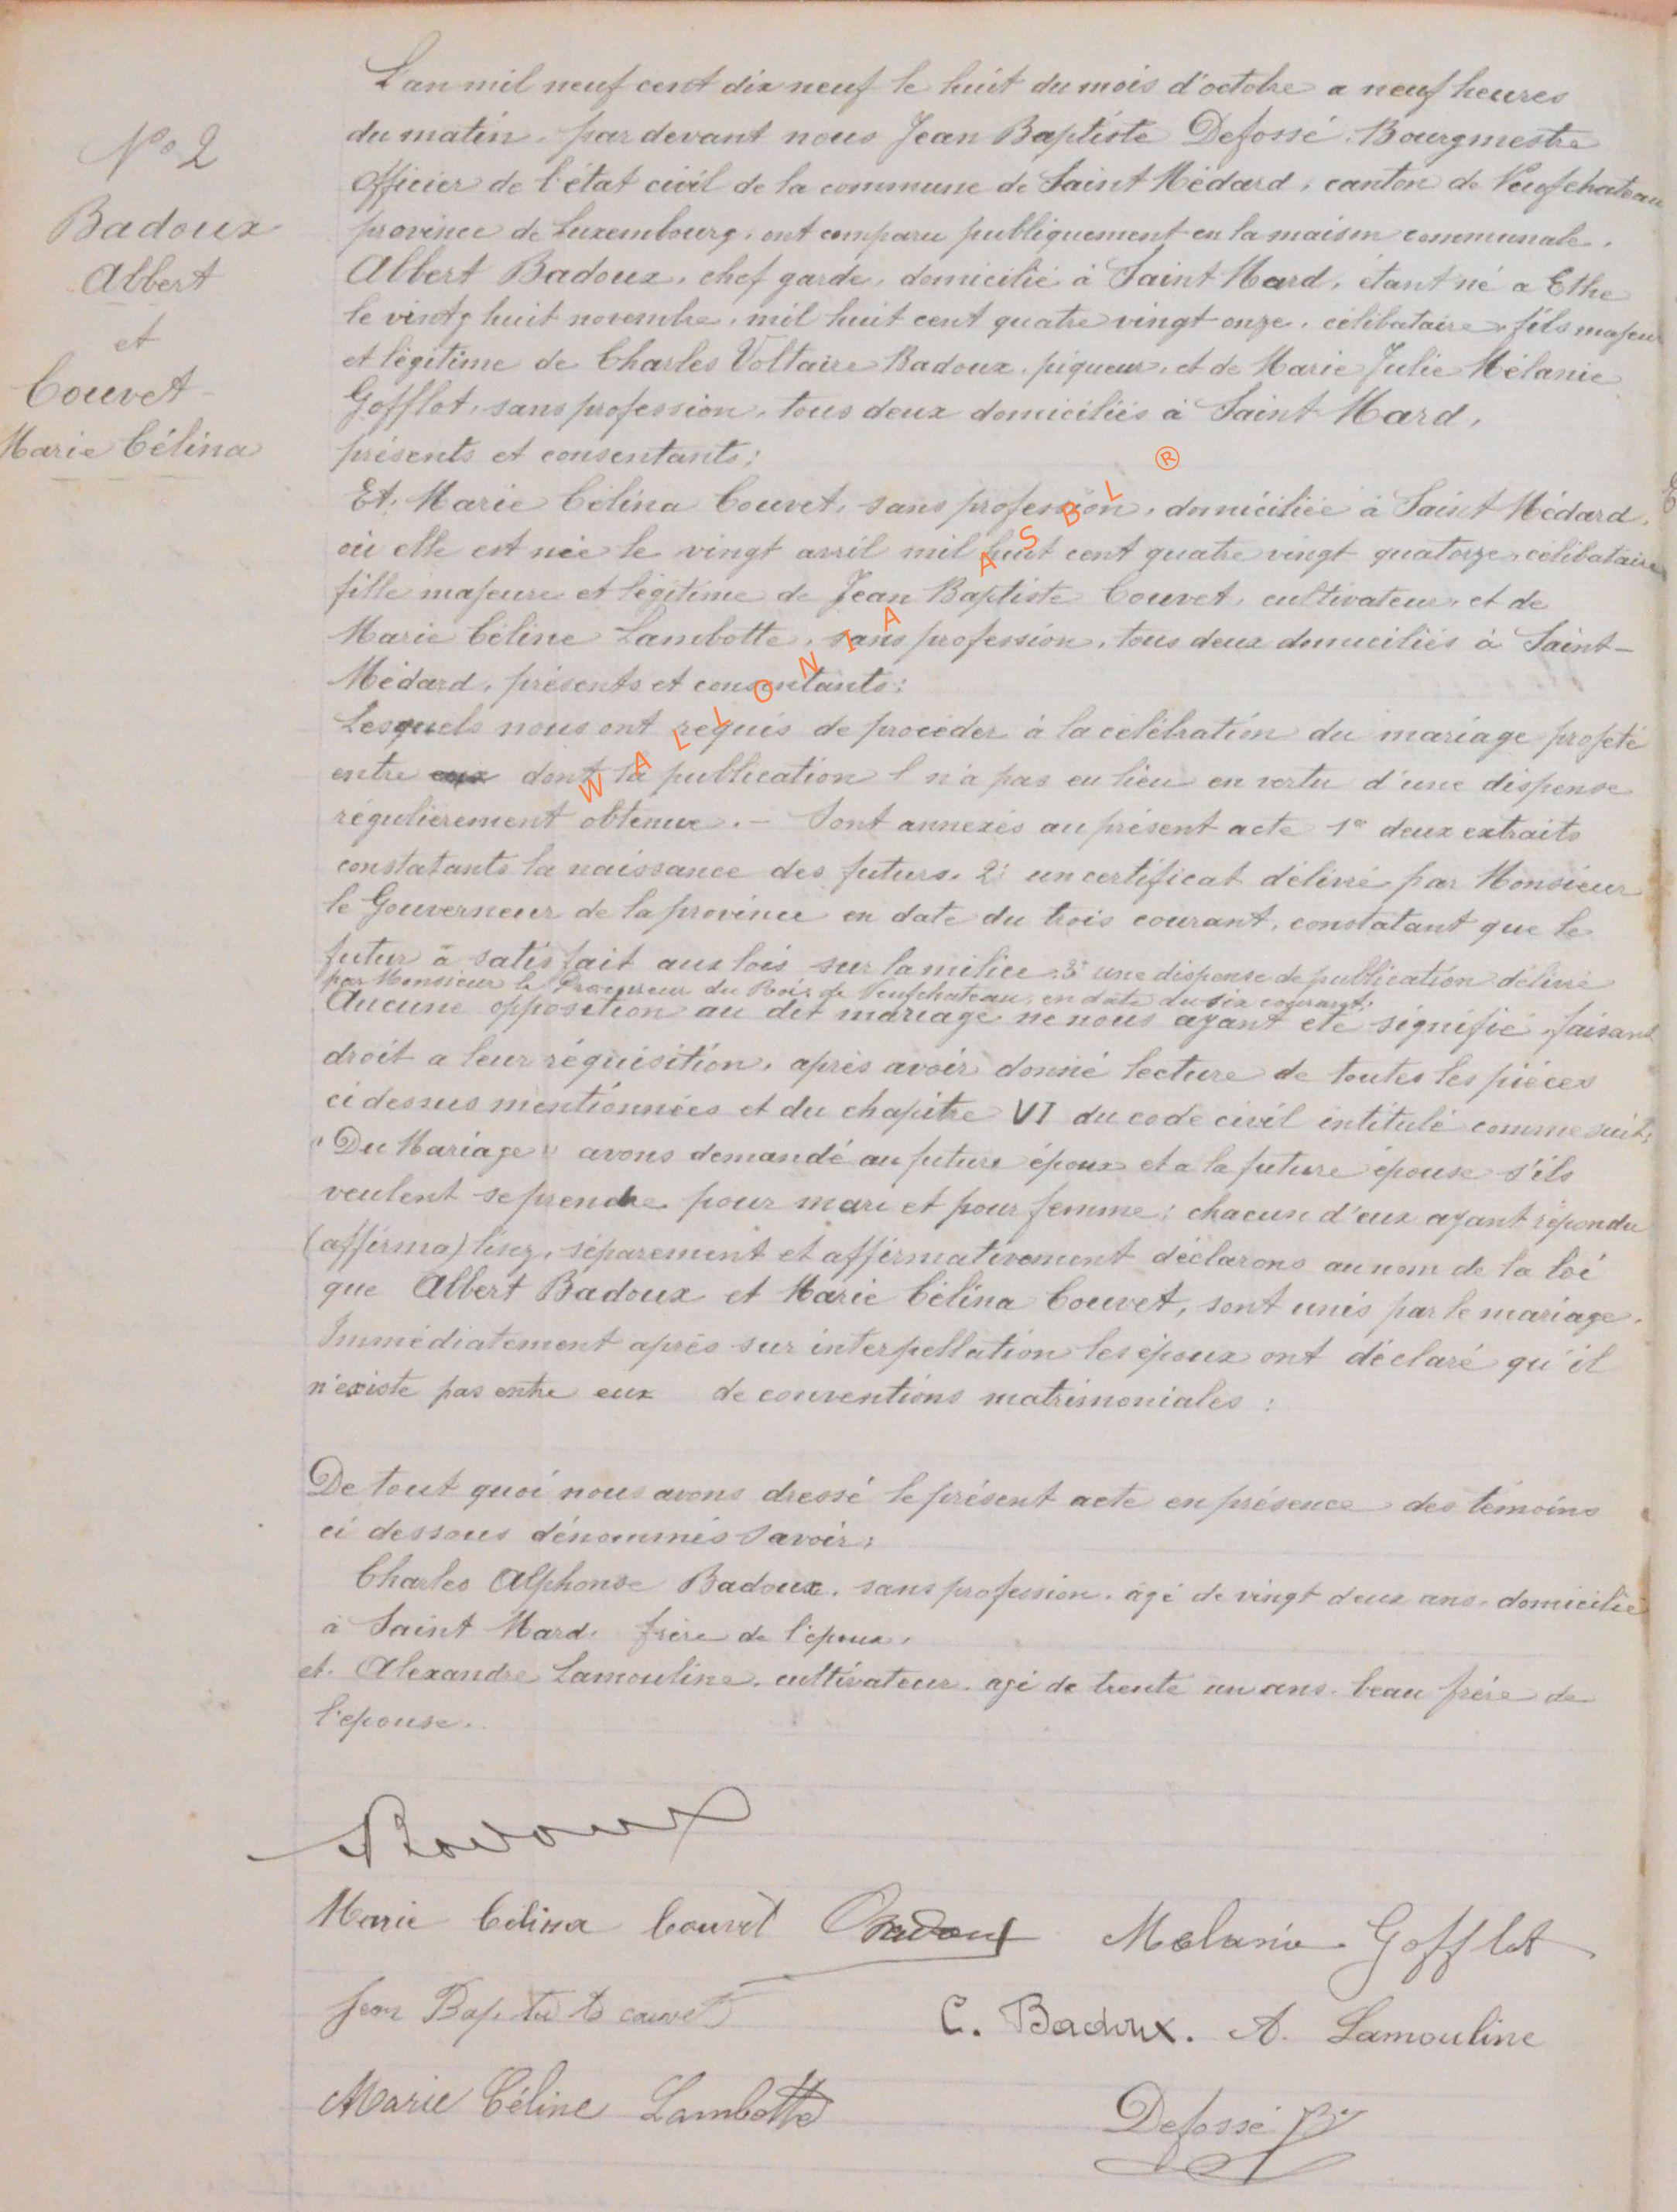 N° 2
Badoux
Albert
et
Couvet
Marie Célina
L'an mil neuf cent dix neuf le huit du mois d'octobre a neuf heures
du matin, par devant nous Jean Baptiste Defossé, Bourgmestre
officier de l'état civil de la commune de Saint Médard, canton de Neufchateau
province de Luxembourg, ont comparu publiquement en la maison communale,
Albert Badoux, chef garde, domicilié à Saint Mard, étant né a Ethe
le vingt huit novembre, mil huit cent quatre vingt onze, célibataire, fils majeur
et légitime de Charles Voltaire Badoux, piqueur, et de Marie Julie Mélanie
Gofflot, sans profession, tous deux domiciliés à Saint-Mard,
présents et consentants;
Et, Marie Célina Couvet, sans profession, domiciliée à Saint Médard,
où elle est née le vingt avril mil huit cent quatre vingt quatorze, célibataire
fille majeure et légitime de Jean Baptiste Couvet, cultivateur, et de
Marie Céline Lambotte, sans profession, tous deux domiciliés à Saint-
Médard, présents et consentants:
Lesquels nous ont requis de procéder à la célébration du mariage projeté
entre eux dont la publication l n'a pas eu lieu en vertu d'une dispense
régulièrement obtenue. – Sont annexés au présent acte 1° deux extraits
constatants la naissance des futurs, 2° un certificat délivré par Monsieur
le Gouverneur de la province en date du trois courant, constatant que le
futur a satisfait aux lois sur la milice 3° une dispense de publication délivré
par Monsieur le Procureur du Roi, de Neufchateau, en date du six courant,
Aucune opposition au dit mariage ne nous ayant été signifié, faisant
droit a leur réquisition, après avoir donné lecture de toutes les pièces
ci dessus mentionnées et du chapitre VI du code civil intitulé comme suit:
"Du Mariage" avons demandé au future époux et a la future épouse s'ils
veulent se prendre pour mari et pour femme; chacun d'eux ayant répondu
(affirma) lisez, séparement et affirmativement déclarons au nom de la loi
que Albert Badoux et Marie Célina Couvet, sont unis par le mariage.
Immédiatement après sur interpellation les époux ont déclaré qu'il
n'existe pas entre eux de conventions matrimoniales :
De tout quoi nous avons dressé le présent acte en présence des témoins
ci dessous dénommés savoir:
Charles Alphonse Badoux, sans profession, âgé de vingt deux ans, domicilié
à Saint Mard, frère de l'époux,
et Alexandre Lamouline, cultivateur, agé de trente un ans, beau frère de
l'epouse.
A Badoux
Marie Célina Couvet Badoux Melanie Gofflot
Jean Baptiste couvet C. Badoux. A. Lamouline
Marie Céline Lambotte Defossé JB
WALLONIA ASBL ®